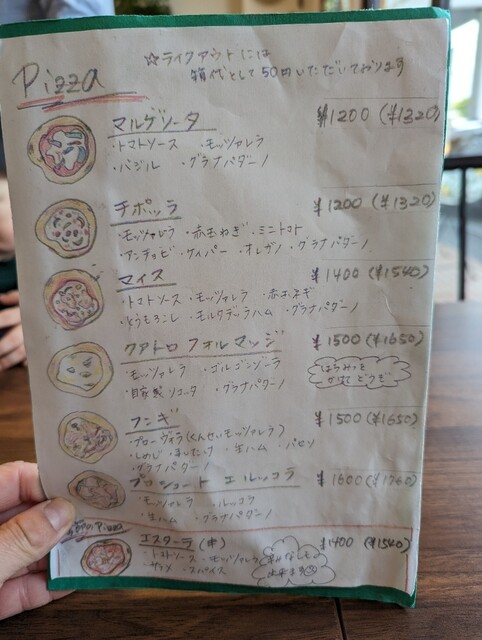 Pizza
☆テイクアウトには
箱代として50円いただいております
マルゲリータ ¥1200(¥1320)
・トマトソース ・モッツァレラ
・バジル ・グラナパダーノ
チポッラ ¥1200(¥1320)
・モッツァレラ ・赤玉ねぎ ・ミニトマト
・アンチョビ ・ケイパー ・オレガノ ・グラナパダーノ
マイス ¥1400(¥1540)
・トマトソース ・モッツァレラ ・赤玉ネギ
・とうもろこし ・モルタデッラハム ・グラナパダーノ
クアトロ フォルマッジ ¥1500(¥1650)
・モッツァレラ ・ゴルゴンゾーラ
・自家製リコッタ ・グラナパダーノ
はちみつを
かけてどうぞ
フンギ ¥1500(¥1650)
・プローヴォラ(くんせいモッツァレラ)
・しめじ ・まいたけ ・生ハム ・パセリ
・グラナパダーノ
プロシュート エ ルッコラ ¥1600(¥1760)
・モッツァレラ ・ルッコラ
・生ハム ・グラナパダーノ
のPizza
エスターテ(中) ¥1400(¥1540)
・トマトソース ・モッツァレラ
・サラメ ・スパイス
辛みなしも
出来ます